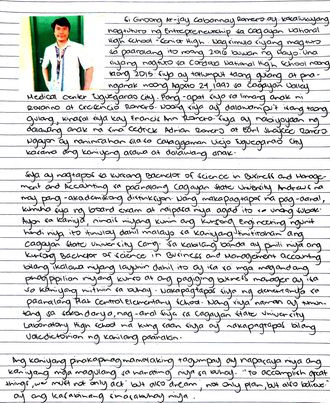 6. Ginoong Ar-jay Cabonnay Romero ay kasalukuyang
nagtuturo ng Entrepreneurship sa Cagayan National
High School - Senior High. Nagsimula siyang magturo
sa paaralang ito noong 2016 buwan ng Mayo. Una
siyang nagturo sa Cordova National High School noong
taong 2015. Siya ay tatlumpu't taong gulang at ipina-
nganak noong Agosto 24, 1992 sa Cagayan Valley
Medical Center Tuguegarao City. Pang-apat siya sa limang anak ni
Rosalina at Crescencio Romero. Noong siya ay dalawampu't isang taong
gulang, kinasal siya kay Francis Ann Romero. Siya ay nabiyayaan ng
dalawang anak na sina Cedrick Adrian Romero at Earl Romero.
Ngayon ay naninirahan siya sa Caggay Tuguegarao City
kasama ang kaniyang asawa at dalawang anak.
Siya ay nagtapos sa kursong Bachelor of Science in Business and Manage-
ment and Accounting sa paaralang Cagayan State University Andrews na
may pang-akademikong distinksyon. Nang makapagtapos ng pag-aaral,
kumuha siya ng board exam at naipasa niya agad ito sa unang subok.
Ayon sa kaniya, noong nungang kunin ang kursong Engineering ngunit
hindi niya ito tinuloy dahil malayo sa kaniyang tinitirahan ang
Cagayan State University Carig. Sa kabilang banda ay pinili niya ang
kursong Bachelor of Science in Business and Management Accounting
bilang ikalawa niyang layunin dahil ito ay isa sa mga magandang
pagpipilian niyang kurso at ang pagiging business manager ay isa
sa kaniyang mithiin sa buhay. Nakapagtapos siya ng elementarya sa
paaralang Piat Central Elementary School. Nang siya naman ay tumun-
tong sa sekondarya, nag-aral siya sa Cagayan State University
Laboratory High School na kung saan siya ay nakapagtapos bilang
Valedictorian ng kanilang paaralan.
Ang kaniyang pinakapinagmamalaking tagumpay ay napasaya niya ang
kaniyang mga magulang sa narating niya sa buhay. "To accomplish great
things, we must not only act, but also dream, not only plan, but also believe"
ay ang kasabihang sinasabuhay niya.